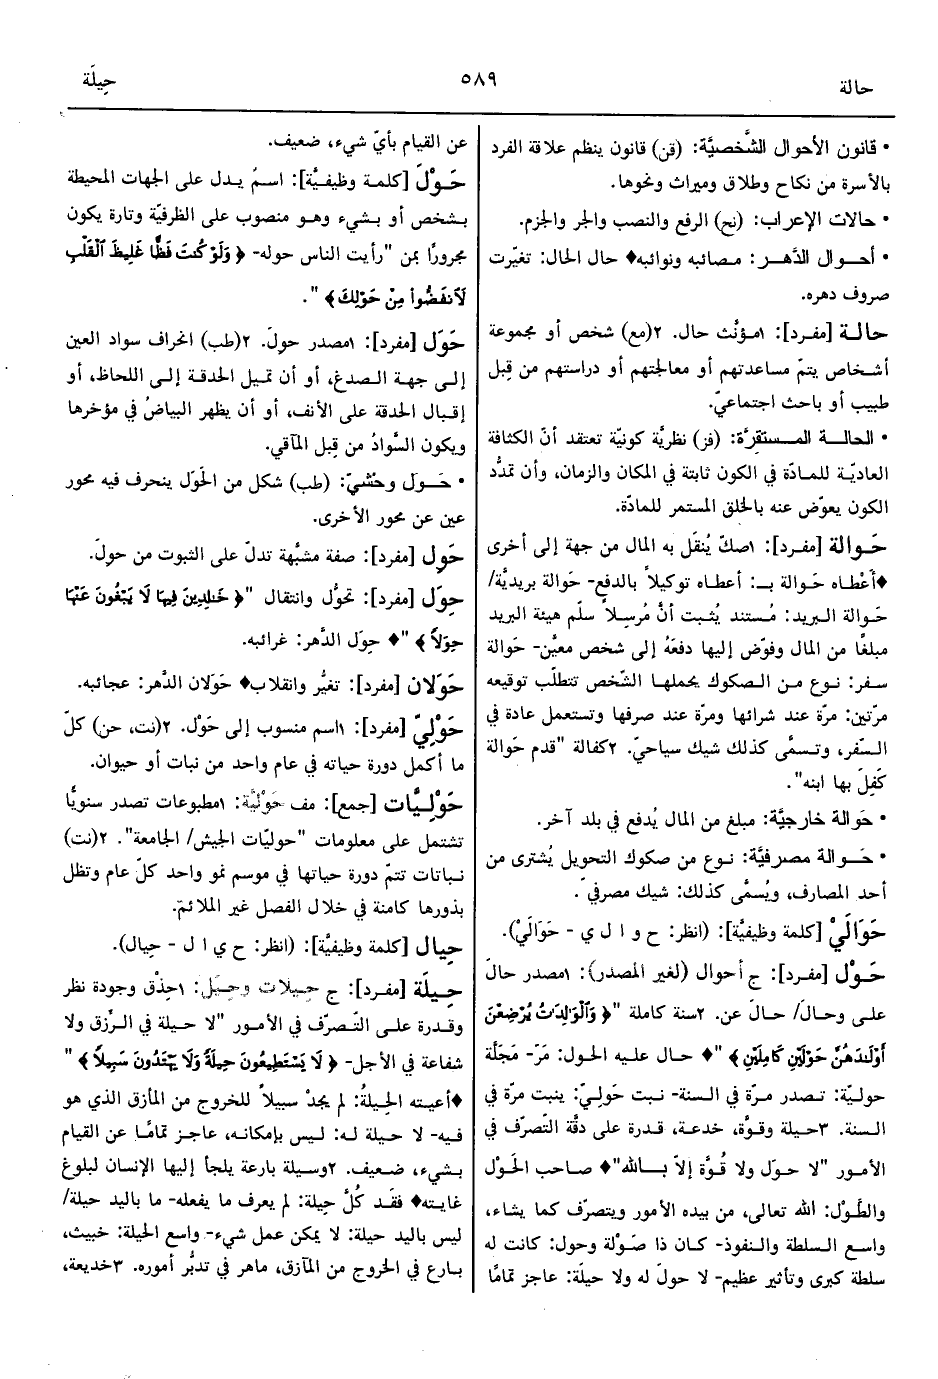 حالة
٥٨٩
حِيلَة
• قانون الأحوال الشَّخصيَّة: (قن) قانون ينظم علاقة الفرد
بالأسرة من نكاح وطلاق وميراث ونحوها.
• حالات الإعراب: (نح) الرفع والنصب والجر والجزم.
• أحوال الدَّهر: مصائبه ونوائبه♦ حال الحال: تغيّرت
صروف دهره.
حالة [مفرد]: ١مؤنَّث حال. ٢(مع) شخص أو مجموعة
أشخاص يتمّ مساعدتهم أو معالجتهم أو دراستهم من قِبل
طبيب أو باحث اجتماعيّ.
• الحالة المستقرّة: (فز) نظريَّة كونيّة تعتقد أنّ الكثافة
العاديّة للمادّة في الكون ثابتة في المكان والزمان، وأن تمدُّد
الكون يعوّض عنه بالخلق المستمر للمادّة.
حَوالة [مفرد]: ١صكّ يُنقَل به المال من جهة إلى أخرى
♦أعْطاه حَوالة بـ: أعطاه توكيلاً بالدفع- حَوالة بريديَّة/
حَوالة البريد: مُستند يُثبت أنَّ مُرسِلاً سلّم هيئة البريد
مبلغًا من المال وفوّض إليها دفعَهُ إلى شخص معيَّن- حَوالة
سفر: نوع من الصكوك يحملها الشّخص تتطلّب توقيعه
مرّتين: مرّة عند شرائها ومرّة عند صرفها وتستعمل عادة في
السّفر، وتسمَّى كذلك شيك سياحيّ. ٢كفالة "قدم حَوالة
كَفِلَ بها ابنه".
• حَوالة خارجيَّة: مبلغ من المال يُدفع في بلد آخر.
• حَوالة مصرفيَّة: نوع من صكوك التحويل يُشترى من
أحد المصارف، ويُسمَّى كذلك: شيك مصرفيّ.
حَوَالَيْ [كلمة وظيفيَّة]: (انظر: ح و ا ل ي - حَوَالَيْ).
حَوْل [مفرد]: ج أحوال (لغير المصدر): ١مصدر حالَ
على وحال/ حالَ عن. ٢سنة كاملة "﴿ وَٱلْوَٰلِدَٰتُ يُرْضِعْنَ
أَوْلَٰدَهُنَّ حَوْلَيْنِ كَامِلَيْنِ ﴾ "♦ حال عليه الحول: مَرّ- مَجَلَّة
حوليّة: تصدر مرّة في السنة- نبت حَوليّ: ينبت مرّة في
السنة. ٣حيلة وقوَّة، خدعة، قدرة على دقَّة التّصرّف في
الأمور "لا حولَ ولا قُوَّة إلاّ بالله"♦ صاحب الحَوْل
والطَّوْل: الله تعالى، من بيده الأمور ويتصرّف كما يشاء،
واسع السلطة والنفوذ- كان ذا صَوْلة وحول: كانت له
سلطة كبرى وتأثير عظيم- لا حولَ له ولا حيلَة: عاجز تمامًا
عن القيام بأيّ شيء، ضعيف.
حَوْلَ [كلمة وظيفيَّة]: اسمٌ يدل على الجهات المحيطة
بشخص أو بشيء وهو منصوب على الظرفيّة وتارة يكون
مجرورًا بمن "رأيت الناس حوله- ﴿ وَلَوْ كُنتَ فَظًّا غَلِيظَ ٱلْقَلْبِ
لَٱنفَضُّوا۟ مِنْ حَوْلِكَ ﴾ ".
حَوَل [مفرد]: ١مصدر حولَ. ٢(طب) انحراف سواد العين
إلى جهة الصدغ، أو أن تميل الحدقة إلى اللحاظ، أو
إقبال الحدقة على الأنف، أو أن يظهر البياضُ في مؤخرها
ويكون السَّوادُ من قِبل المآقي.
• حَوَل وحْشيّ: (طب) شكل من الحَوَل ينحرف فيه محور
عين عن محور الأخرى.
حَوِل [مفرد]: صفة مشبَّهة تدلّ على الثبوت من حولَ.
حِوَل [مفرد]: تحوُّل وانتقال "﴿ خَٰلِدِينَ فِيهَا لَا يَبْغُونَ عَنْهَا
حِوَلًا ﴾ "♦ حِوَل الدَّهر: غرائبه.
حَوَلان [مفرد]: تغيُّر وانقلاب♦ حَوَلان الدَّهر: عجائبه.
حَوْلِيّ [مفرد]: ١اسم منسوب إلى حَوْل. ٢(نت، حن) كلّ
ما أكمل دورة حياته في عام واحد من نبات أو حيوان.
حَوْلِيَّات [جمع]: مف حَوْليَّة: ١مطبوعات تصدر سنويًّا
تشتمل على معلومات "حوليّات الجيش/ الجامعة". ٢(نت)
نباتات تتمّ دورة حياتها في موسم نمو واحد كلّ عام وتظل
بذورها كامنة في خلال الفصل غير الملائم.
حِيال [كلمة وظيفيَّة]: (انظر: ح ي ا ل - حِيال).
حِيلَة [مفرد]: ج حِيلات وحِيَل: ١حِذْق وجودة نظر
وقدرة على التّصرّف في الأمور "لا حيلة في الرِّزق ولا
شفاعة في الأجل- ﴿ لَا يَسْتَطِيعُونَ حِيلَةً وَلَا يَهْتَدُونَ سَبِيلًا ﴾ "
♦أعيته الحِيلةُ: لم يجدْ سبيلاً للخروج من المأزق الذي هو
فيه- لا حيلة له: ليس بإمكانه، عاجز تمامًا عن القيام
بشيء، ضعيف. ٢وسيلة بارعة يلجأ إليها الإنسان لبلوغ
غايته♦ فقَد كُلَّ حيلة: لم يعرف ما يفعله- ما باليد حيلة/
ليس باليد حيلة: لا يمكن عمل شيء- واسع الحيلة: خبيث،
بارع في الخروج من المآزق، ماهر في تدبُّر أموره. ٣خديعة،